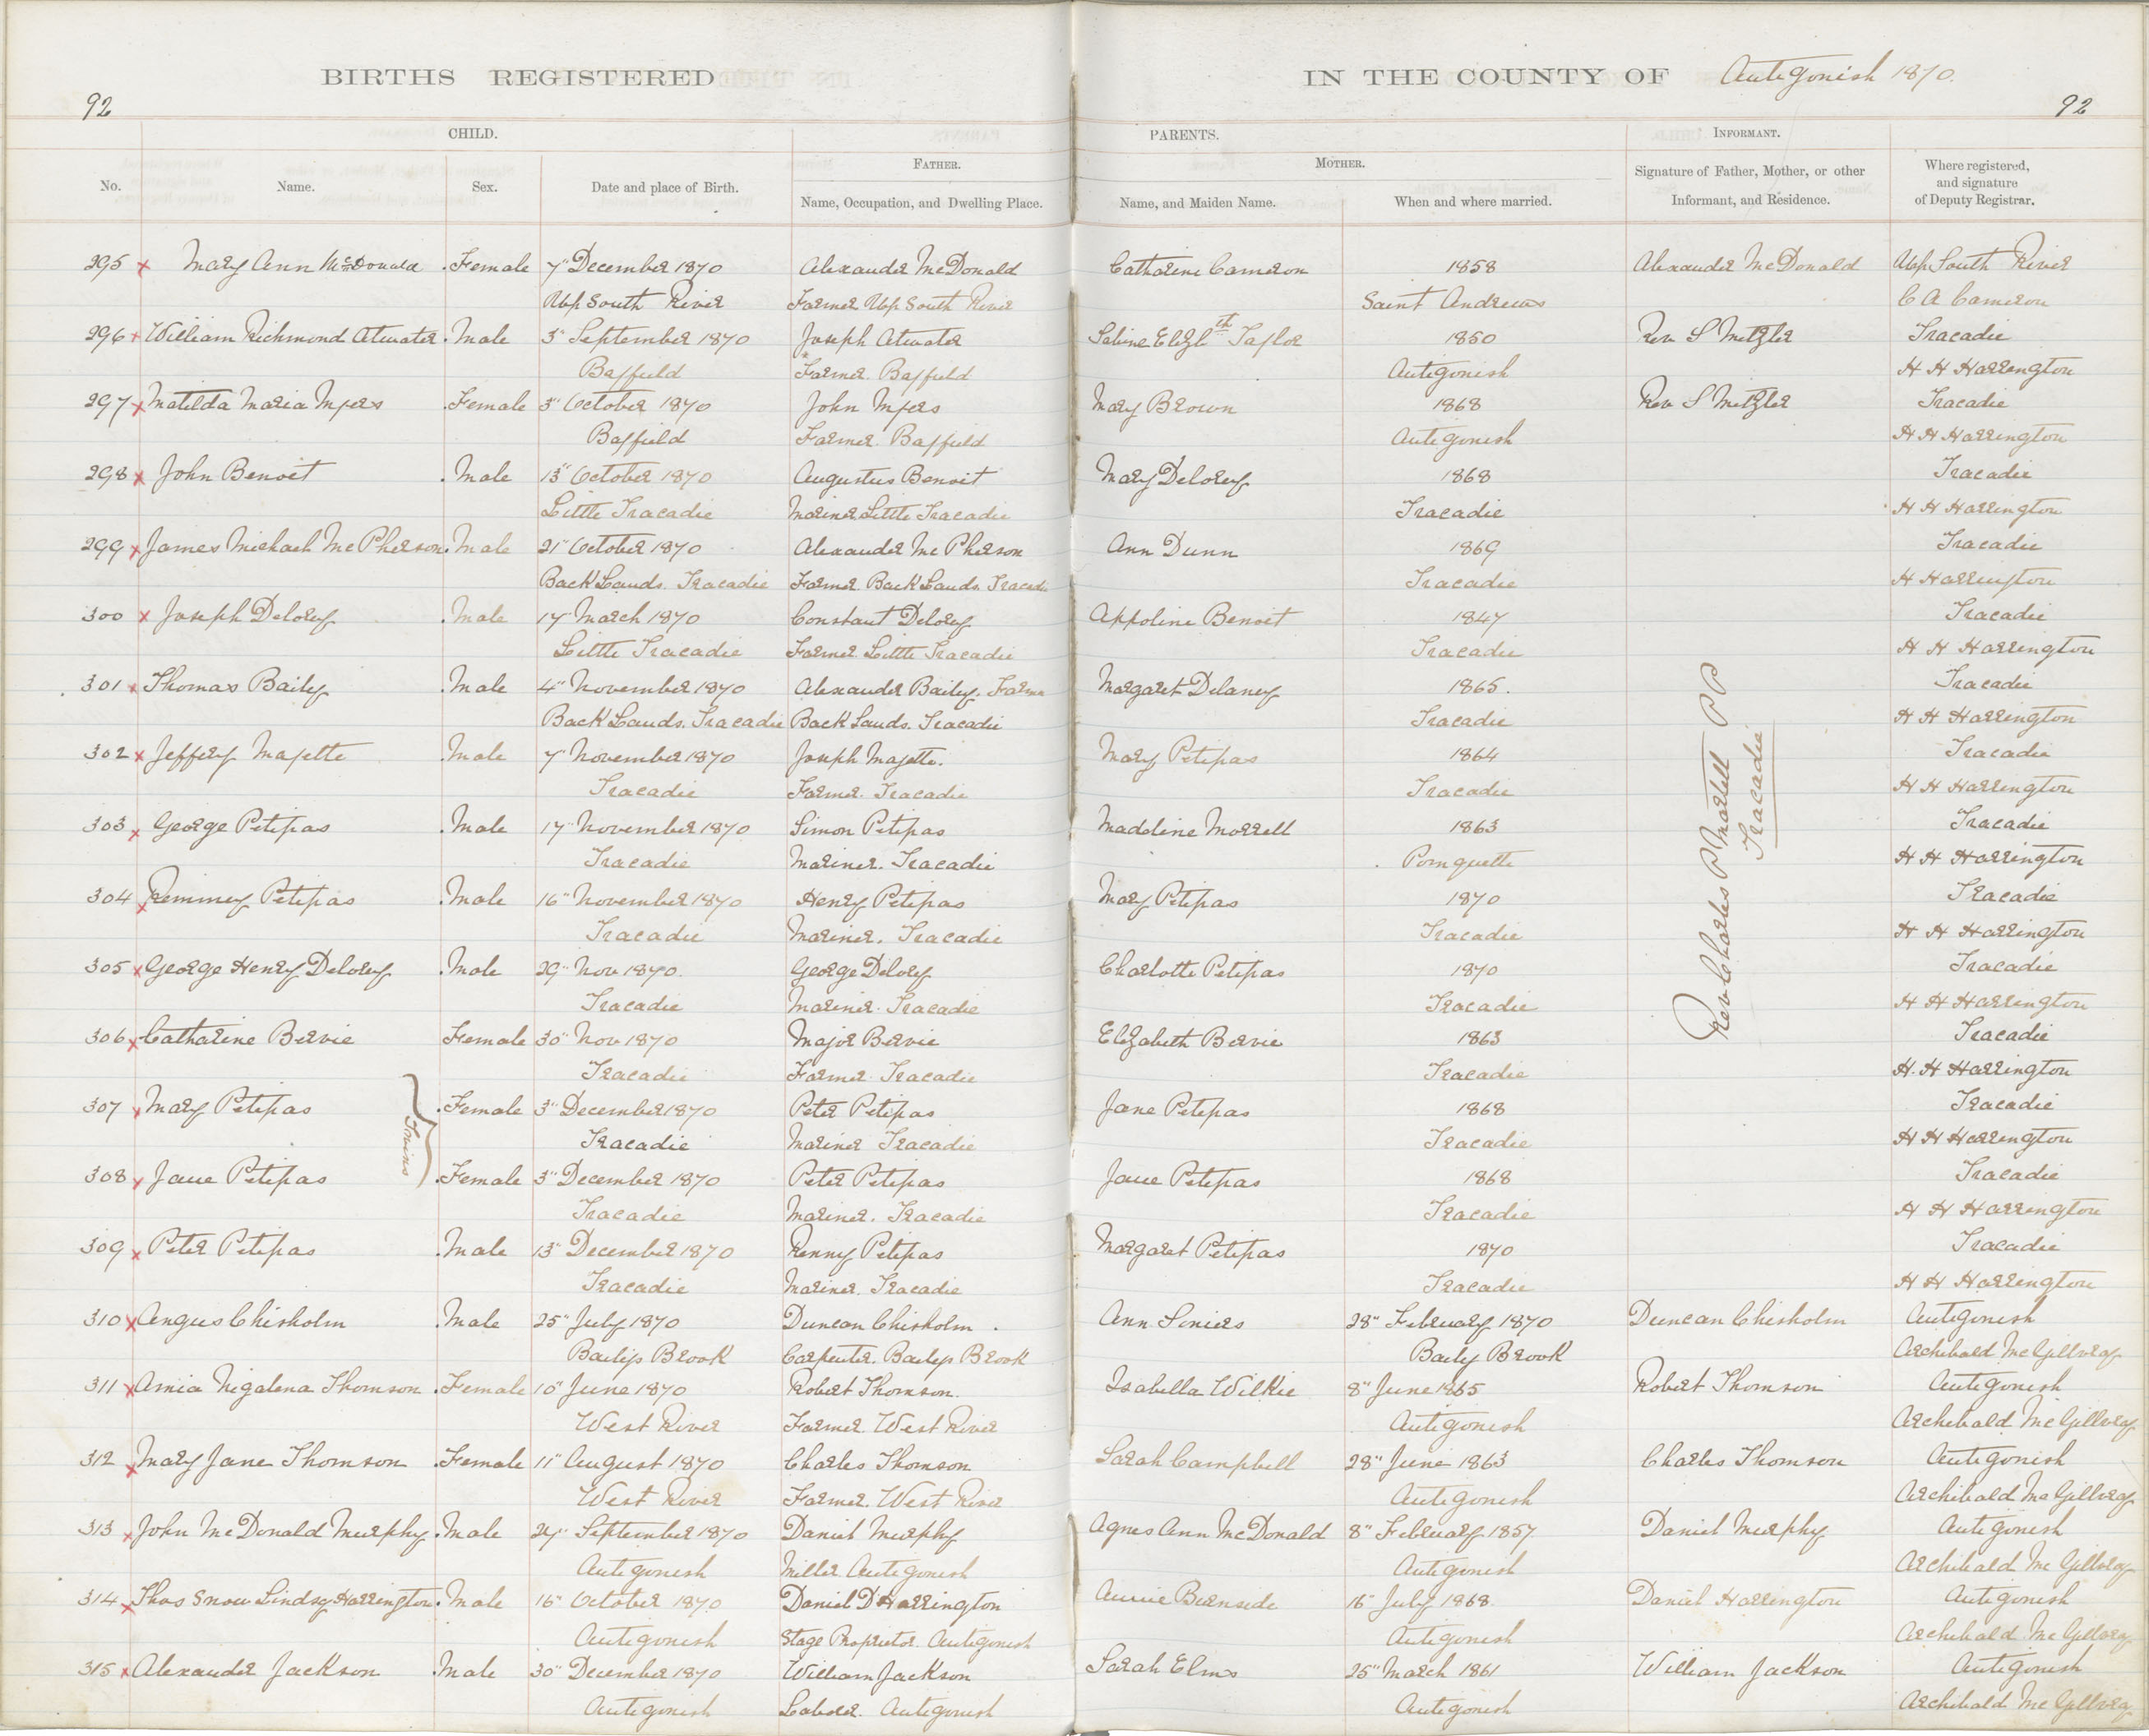 BIRTHS REGISTERED IN THE COUNTY OF Antigonish 1870.
92 92
CHILD. PARENTS. INFORMANT.
No. Name. Sex. Date and place of Birth. FATHER. Name, Occupation, and Dwelling Place. MOTHER. Name, and Maiden Name. When and where married. Signature of Father, Mother, or other Informant, and Residence. Where registered, and signature of Deputy Registrar.
295 x Mary Ann McDonald Female 7" December 1870 Alexander McDonald Catharine Cameron 1858 Alexander McDonald Up South River
Up South River Farmer Up South River Saint Andrews C A Cameron
296 x William Richmond Atwater Male 3" September 1870 Joseph Atwater Sabine Elizbth Taylor 1850 Rev S Mitzler Tracadie
Bayfield Farmer. Bayfield Antigonish H H Harrington
297 x Matilda Maria Myers Female 3" October 1870 John Myers Mary Brown 1868 Rev S Mitzler Tracadie
Bayfield Farmer. Bayfield Antigonish H H Harrington
298 x John Benoit Male 13" October 1870 Augustus Benoit Mary Delorey 1868 Tracadie
Little Tracadie Mariner Little Tracadie Tracadie H H Harrington
299 x James Michael McPherson Male 21" October 1870 Alexander McPherson Ann Dunn 1869 Tracadie
Back Lands. Tracadie Farmer. Back Lands. Tracadie Tracadie H Harrington
300 x Joseph Delorey Male 17" March 1870 Constant Delorey Appoline Benoit 1847 Tracadie
Little Tracadie Farmer Little Tracadie Tracadie H H Harrington
301 x Thomas Baily Male 4" November 1870 Alexander Baily. Farmer Margaret Delaney 1865. Tracadie
Back Lands. Tracadie Back Lands. Tracadie Tracadie H H Harrington
302 x Jeffery Majette Male 7" November 1870 Joseph Majette. Mary Petipas 1864 Tracadie
Tracadie Farmer. Tracadie Tracadie H H Harrington
303 x George Petipas Male 17" November 1870 Simon Petipas Madeline Morrell 1863 Tracadie
Tracadie Mariner. Tracadie Pomquette H H Harrington
304 x Remmey Petipas Male 16" November 1870 Henry Petipas Mary Petipas 1870 Tracadie
Tracadie Mariner. Tracadie Tracadie H H Harrington
305 x George Henry Delorey Male 29" Nov 1870. George Delorey Charlotte Petipas 1870 Tracadie
Tracadie Mariner. Tracadie Tracadie H H Harrington
306 x Catharine Bervie Female 30" Nov 1870 Major Bervie Elizabeth Bervie 1863 Tracadie
Tracadie Farmer Tracadie Tracadie H. H Harrington
Rev Charles P Martell P P
Tracadie
307 x Mary Petipas Female 3" December 1870 Peter Petipas Jane Petipas 1868 Tracadie
Tracadie Mariner Tracadie Tracadie H H Harrington
Twins
308 x Jane Petipas Female 3" December 1870 Peter Petipas Jane Petipas 1868 Tracadie
Tracadie Mariner. Tracadie Tracadie H H Harrington
309 x Peter Petipas Male 13" December 1870 Renny Petipas Margaret Petipas 1870 Tracadie
Tracadie Mariner. Tracadie Tracadie H H Harrington
310 x Angus Chisholm Male 25" July 1870 Duncan Chisholm. Ann Siniers 28" February 1870 Duncan Chisholm Antigonish
Bailys Brook Carpenter. Bailys Brook Baily Brook Archibald McGillvray
311 x Amia Nigalena Thomson Female 10" June 1870 Robert Thomson. Isabella Wilkie 8" June 1865 Robert Thomson Antigonish
West River Farmer. West River Antigonish Archibald McGillvray
312 x Mary Jane Thomson Female 11" August 1870 Charles Thomson Sarah Campbell 28" June 1863 Charles Thomson Antigonish
West River Farmer. West River Antigonish Archibald McGillvray
313 x John McDonald Murphy Male 27" September 1870 Daniel Murphy Agnes Ann McDonald 8" February 1857 Daniel Murphy Antigonish
Antigonish Miller Antigonish Antigonish Archibald McGillvray
314 x Thos Snow Lindsy Harrington Male 16" October 1870 Daniel D Harrington Annie Burnside 16" July 1868 Daniel Harrington Antigonish
Antigonish Stage Proprietor. Antigonish Antigonish Archibald McGillvray
315 x Alexander Jackson Male 30" December 1870 William Jackson Sarah Elms 25" March 1861 William Jackson Antigonish
Antigonish Laborer. Antigonish Antigonish Archibald McGillvray